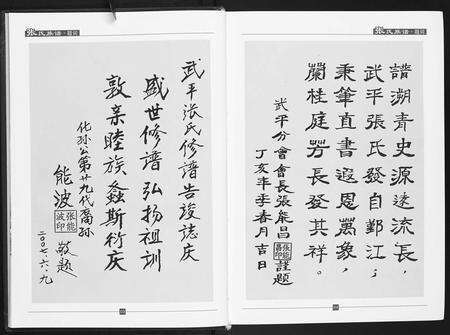 张氏族谱·题词
武平张氏修譜告竣誌庆
盛世修譜弘扬祖训
敦亲睦族螽斯衍庆
化孙公第廿九代裔孙
能波
张能波印
敬题
二〇〇七.六.九
张氏族谱·题词
譜溯青史源遠流長，
武平張氏發自鄞江；
秉筆直書遐思萬象，
蘭桂庭芳長發其祥。
武平分會會長張能昌
張能昌印
謹題
丁亥年季春月吉日